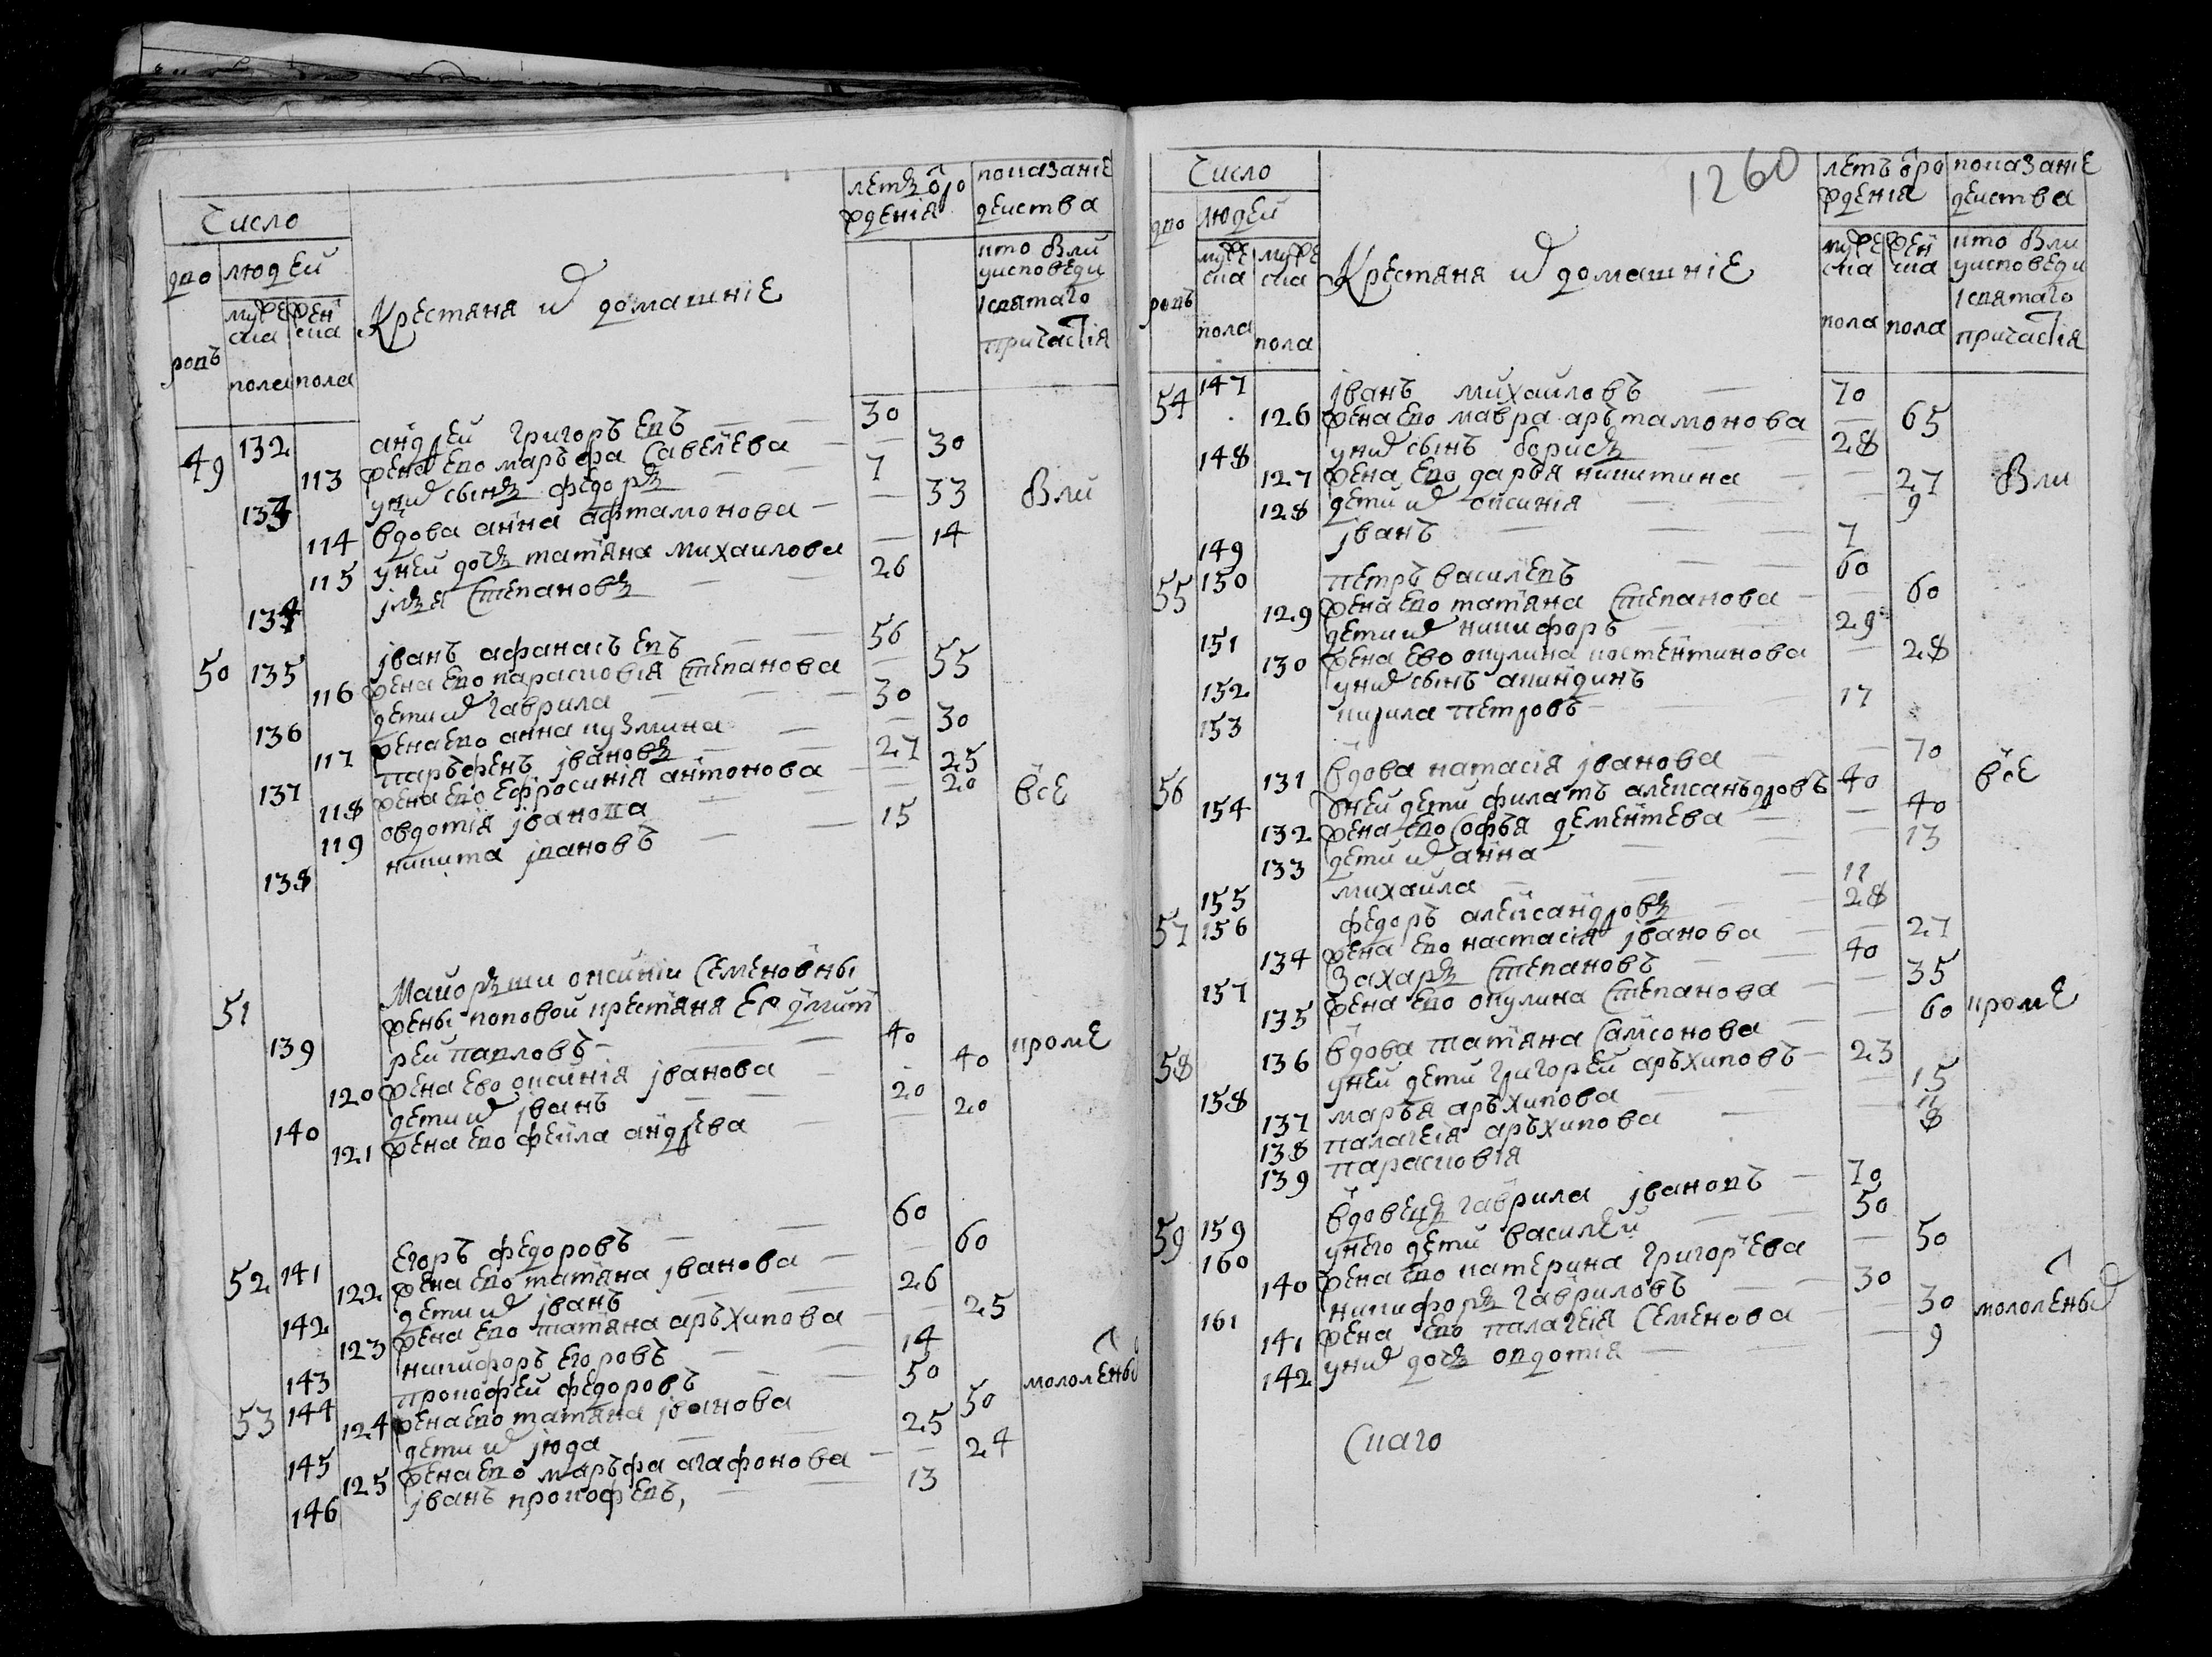 Число
дво
ровъ
людей
муже
ска
пола
жен
ска
пола
Крестяня и домашнiе
летъ ѿро
жденiя
показанiе
деиства
кто былъ
уисповеди
iсвятаго
причастiя
49 132 андрей григорьевъ 30
113 жена ево марьфа савелева 30
133 уних сынъ федоръ 7
114 вдова анна афтамонова 33
115 уней дочъ татяна михаилова 14
134 iлъя степановъ 26
были
50 135 iванъ афанасьевъ 56
116 жена ево парасковiя степанова 55
136 дети их гаврила 30
117 жена ево анна кузмина 30
137 парьфенъ iвановъ 27
118 жена ево ефросинiя антонова 25
119 овдотiя iванова 20
138 никита iвановъ 15
все
51 Маиоръши оксинiи семеновны
жены поповой крестяня ея дмит
139 рей павловъ 40
120 жена ево оксинiя iванова 40
140 дети их iванъ 20
121 жена ево фекла андрева 20
кроме
52 141 егоръ федоровъ 60
122 жена ево татяна iванова 60
142 дети их iванъ 26
123 жена ево татяна архипова 25
143 никифоръ егоровъ 14
53 144 прокофей федоровъ 50
124 жена ево татяна iванова 50
145 дети их iюда 25
125 жена ево марьфа агафонова 24
146 iванъ прокофевъ, 13
1260
Число
дво
ровъ
людей
муже
ска
пола
муже
ска
пола
Крестяня и домашнiе
летъ ѿро
жденiя
муже
ска
пола
жен
ска
пола
показанiе
деиства
кто были
уисповеди
iсвятаго
причастiя
54 147 iванъ михаиловъ 70
126 жена ево мавра арьтамонова 65
148 уних сынъ борисъ 28
127 жена ево дарья никитина 27
128 дети их оксинiя 9
149 iванъ 7
были
55 150 петръ василевъ 60
129 жена ево татяна степанова 60
151 дети их никифоръ 29
130 жена ево окулина костентинова 28
152 уних сынъ акиндинъ
153 кирила петровъ 17
56 131 вдова натасiя iванова 70
154 оней дети филатъ алексанъдровъ 40
132 жена ево софья дементева 40
133 дети их анна 13
155 михаила 11
все
57 156 федоръ александровъ 28
134 жена ево настасiя iванова 27
157 захаръ степановъ 40
135 жена ево окулина степанова 35
58 136 вдова татяна самсонова 60
158 уней дети григорей арьхиповъ 23
137 марья арьхипова 15
138 палагеiя арьхипова 11
139 парасковiя 8
кроме
59 159 вдовецъ гаврила iвановъ 70
160 унего дети василей 50
140 жена ево катерина григорева 50
161 никифоръ гавриловъ 30
141 жена ево палагеiя семенова 30
142 уних дочъ овдотiя 9